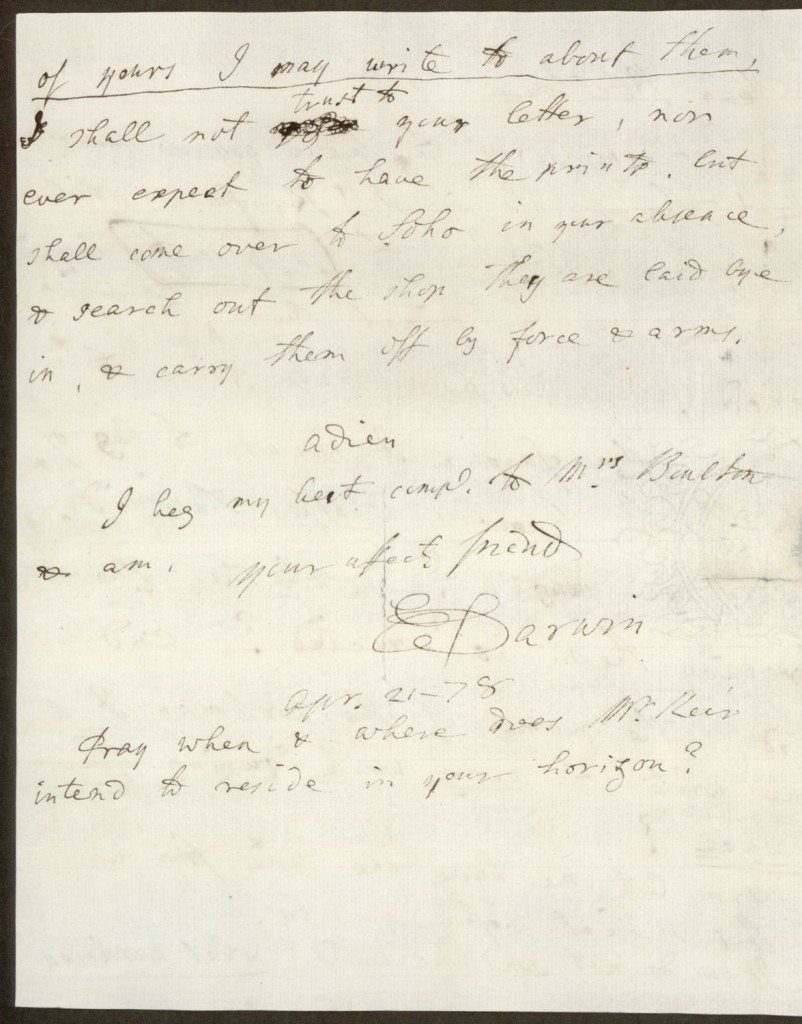 of yours I may write to about them,
I shall not trust to your letter, nor
ever expect to have the prints. but
shall come over to Soho in your absence,
& search out the shop they are laid bye
in, & carry them off by force & arms.
adieu
I beg my best compl. to Mrs. Boulton
& am. your affect. friend
E Darwin
Apr. 21-78
Pray when & where does Mr. Keir
intend to reside in your horizon?